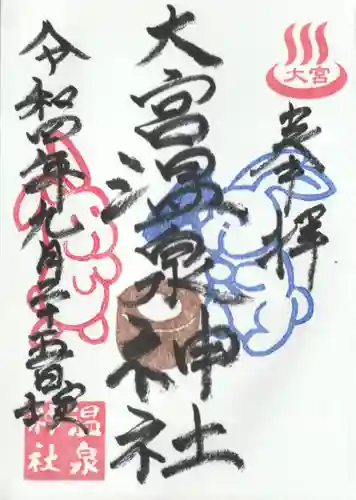 大宮
奉拝
大宮温泉神社
令和四年九月二十五日
温泉
神社